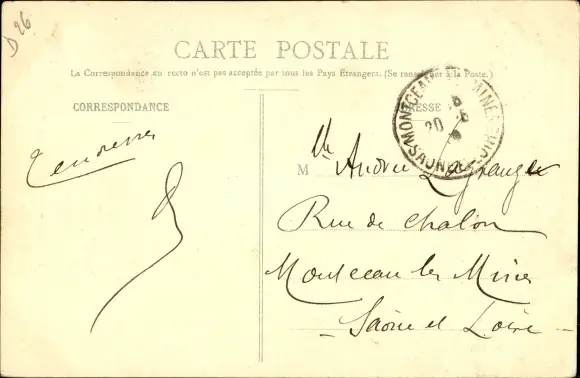 D 26
CARTE POSTALE
La Correspondance au recto n'est pas acceptée par tous les Pays Étrangers. (Se renseigner à la Poste.)
CORRESPONDANCE
ADRESSE
MONTCEAU-LES-MINES
20
SAONE-ET-LOIRE
Tendresses
M lle Andrée Lagrange
Rue de Chalon
Montceau les Mines
Saône et Loire